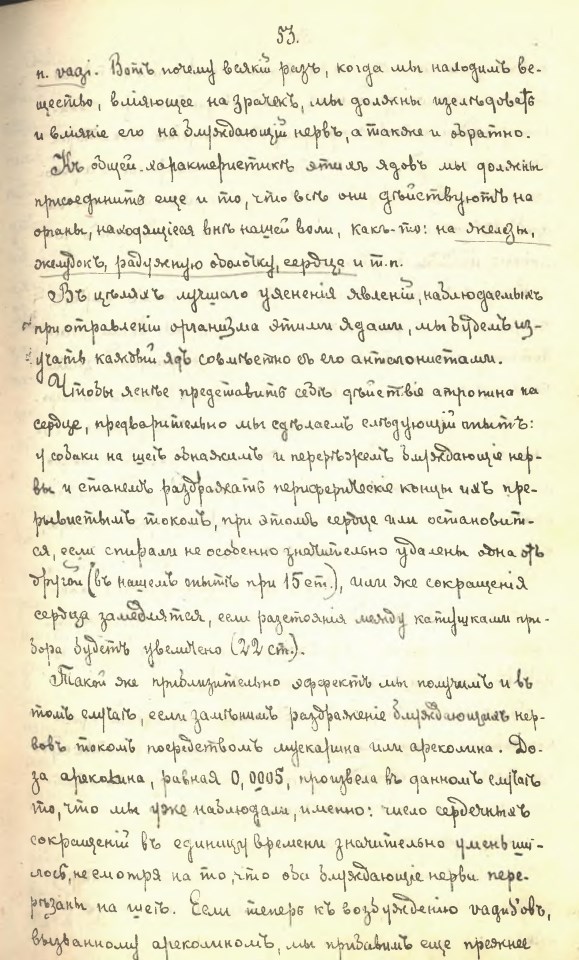 53.
n. vagi. Вотъ почему всякій разъ, когда мы находимъ ве-
щество, вліяющее на зрачекъ, мы должны изслѣдовать
и вліяніе его на блуждающій нервъ, а также и обратно.
Къ общей характеристикѣ этихъ ядовъ мы должны
присоединить еще и то, что всѣ они дѣйствуютъ на
органы, находящіеся внѣ нашей воли, какъ-то: на железы,
желудокъ, радужную оболочку, сердце и т.п.
Въ цѣляхъ лучшаго уясненія явленій, наблюдаемыхъ
при отравленіи организма этими ядами, мы будемъ из-
учать каждый ядъ совмѣстно съ его антагонистами.
Чтобы яснѣе представить себѣ дѣйствіе атропина на
сердце, предварительно мы сдѣлаемъ слѣдующій опытъ:
у собаки на шеѣ обнажимъ и перерѣжемъ блуждающіе нер-
вы и станемъ раздражать периферическіе концы ихъ пре-
рывистымъ токомъ, при этомъ сердце или остановит-
ся, если спирали не особенно значительно удалены одна отъ
другой (въ нашемъ опытѣ при 15 ст.), или же сокращенія
сердца замедлятся, если разстоянія между катушками при-
бора будетъ увеличено (22 ст.).
Такой же приблизительно эффектъ мы получимъ и въ
томъ случаѣ, если замѣнимъ раздраженіе блуждающихъ нер-
вовъ токомъ посредствомъ мускарина или ареколина. До-
за ареколина, равная 0,0005, произвела въ данномъ случаѣ
то, что мы уже наблюдали, именно: число сердечныхъ
сокращеній въ единицу времени значительно уменьши-
лось, не смотря на то, что оба блуждающіе нерви пере-
рѣзаны на шеѣ. Если теперь къ возбужденію vagus'овъ,
вызванному ареколиномъ, мы прибавимъ еще прежнее